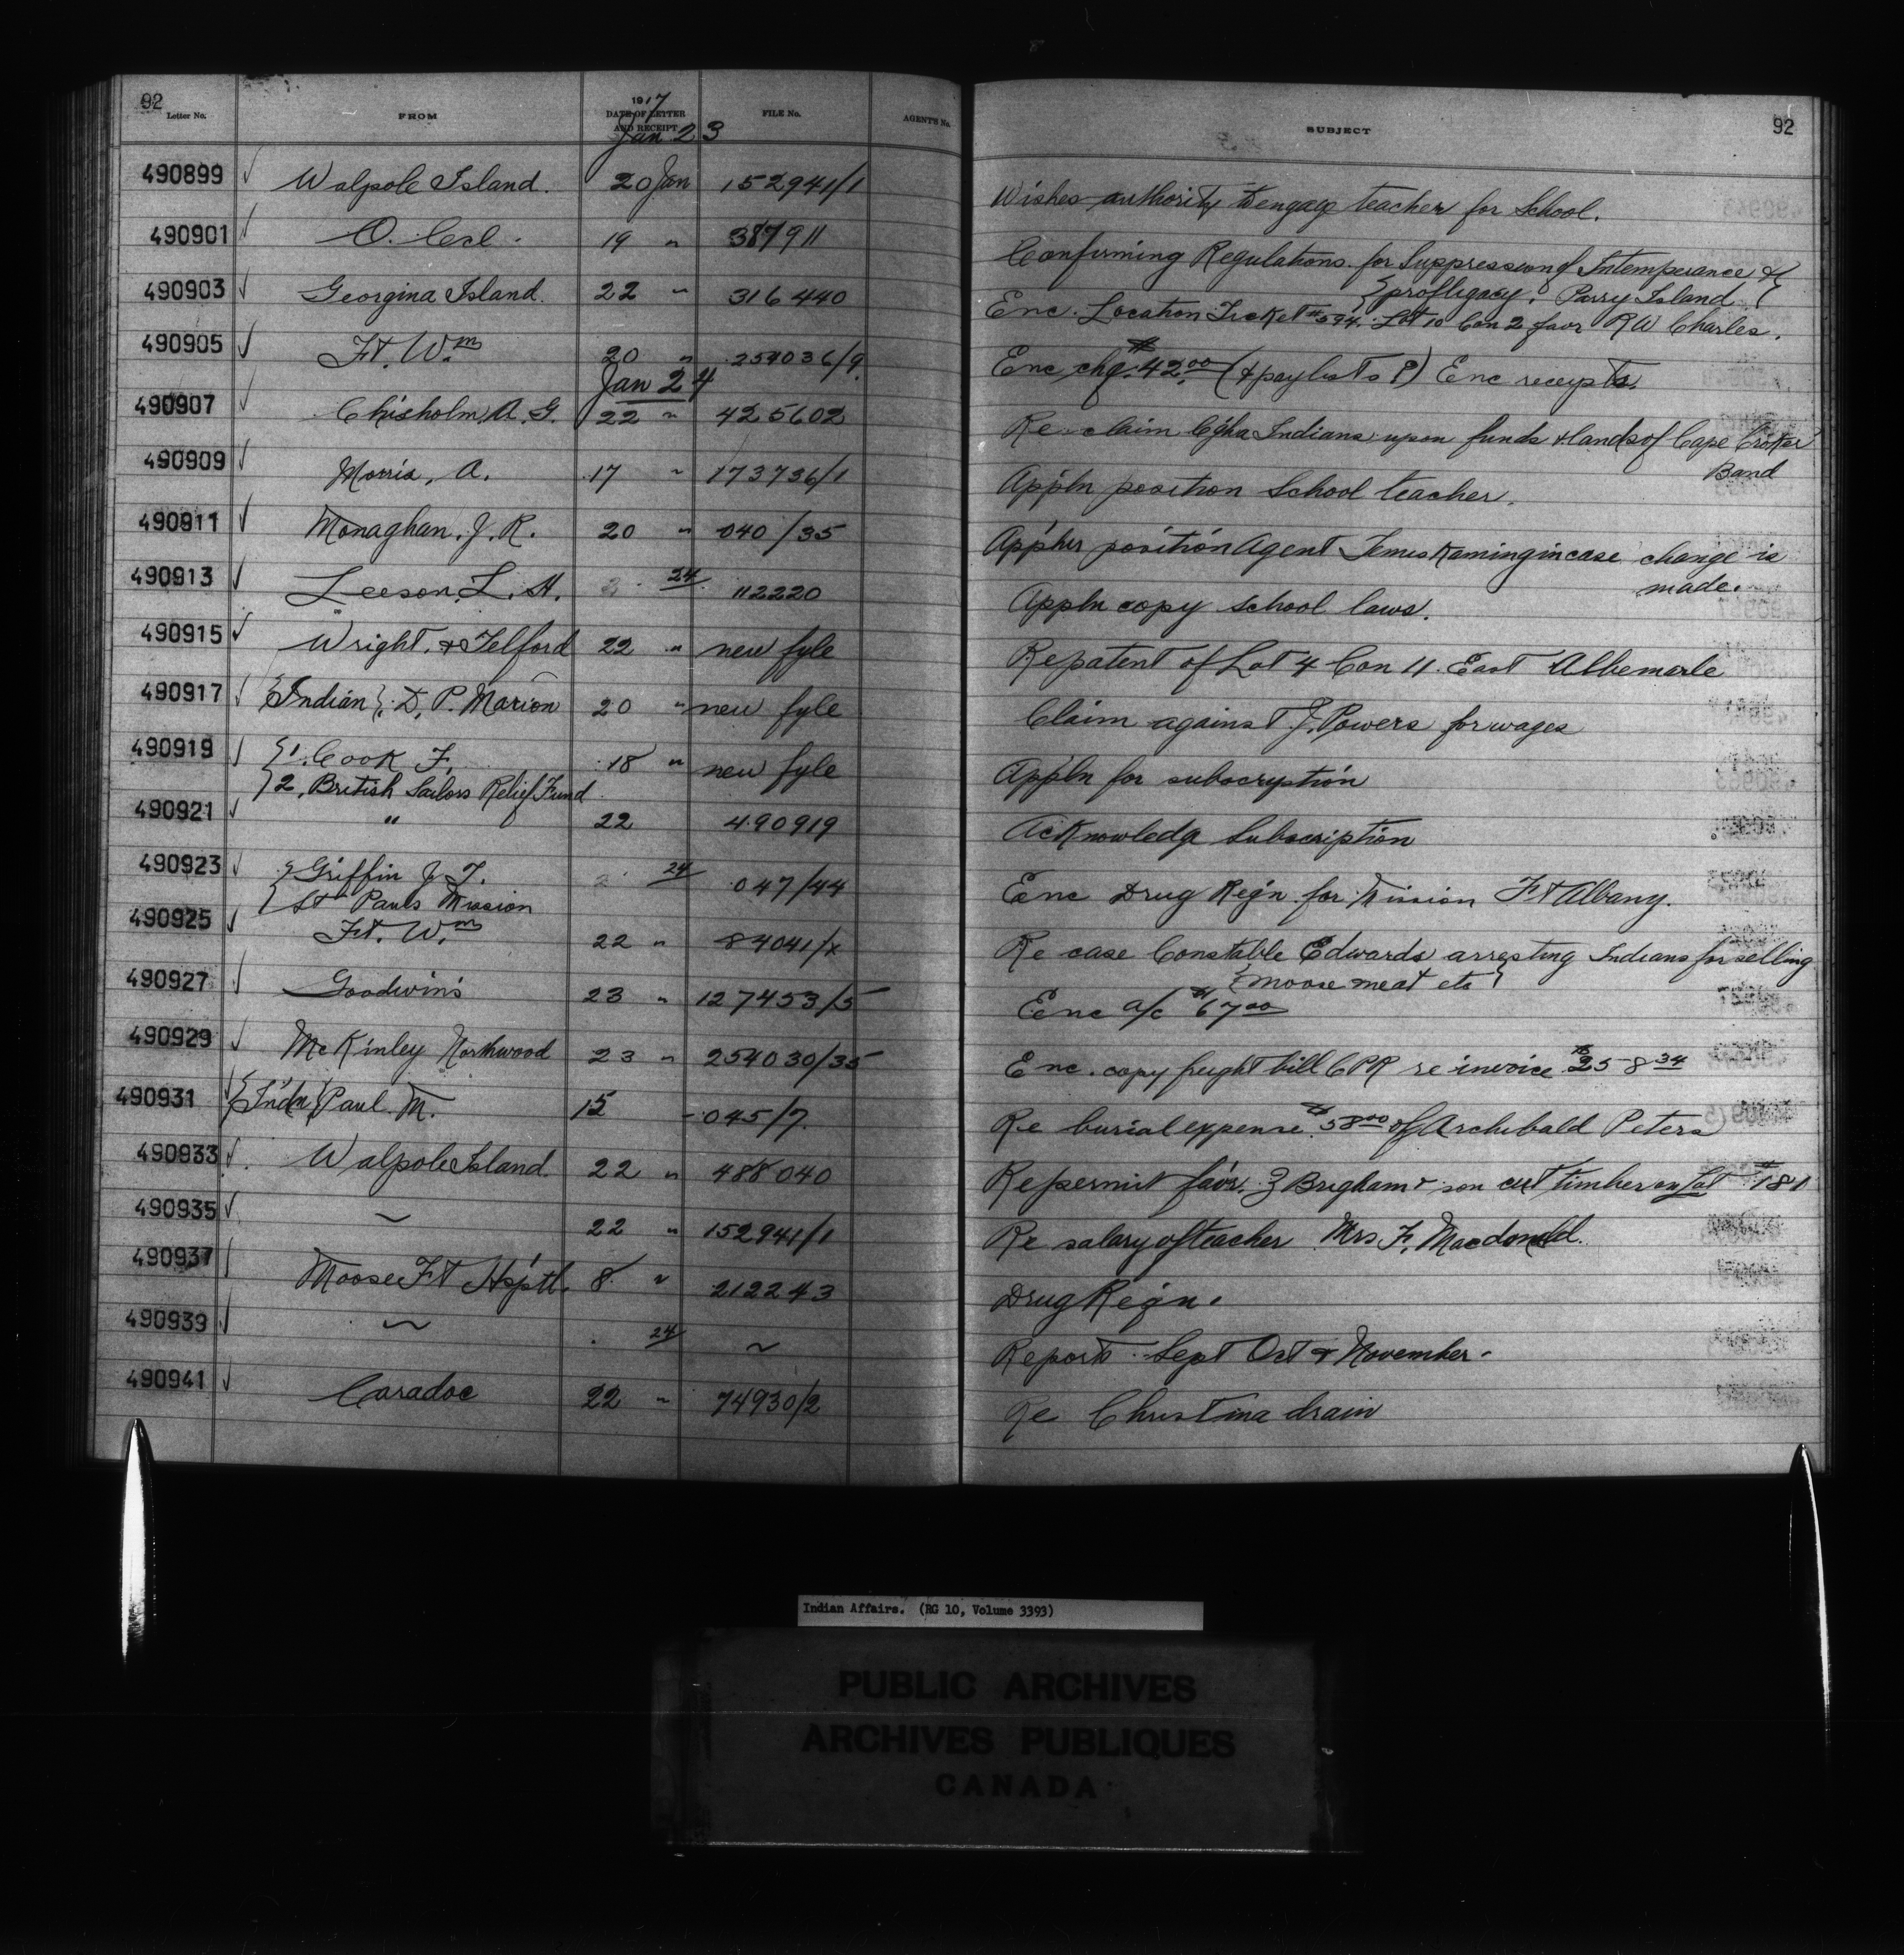 92
Letter No. FROM 1917 DATE OF LETTER AND RECEIPT FILE No. AGENT'S No. SUBJECT 92
Jan 23
490899 ✓ Walpole Island. 20 Jan 152941/1 Wishes authority to engage teacher for School.
490901 ✓ O. Ccl. 19 " 387911 Confirming Regulations for Suppression of Intemperance &
{profligacy. Parry Island}
490903 ✓ Georgina Island. 22 " 316440 Enc. Location Ticket #594. Lot 10 Con 2 favr R W Charles.
490905 ✓ Ft. Wm 20 " 254036/9 Enc chq. $42.00 (& paylists ?) Enc receipts.
Jan 24
490907 ✓ Chisholm, A. G. 22 " 425602 Re claim C'gha Indians upon funds & lands of Cape Croker
Band
490909 ✓ Morris, A. 17 " 173736/1 Appln position School teacher.
490911 ✓ Monaghan, J. R. 20 " 040/35 position Agent Temiskaming in case change is
made.
490913 ✓ Leeson, L. H. 24 112220 Appln copy School laws.
490915 ✓ Wright & Telford 22 " new fyle Re patent of Lot 4 Con 11. East Albemarle
490917 ✓ {Indian} D. P. Marion 20 " new fyle Claim against J. Powers for wages
490919 ✓ {1. Cook F. 18 " new fyle Appln for subscryption
{2. British Sailors Relief Fund
490921 ✓ " 22 490919 Acknowledg Subscription
490923 ✓ {Griffin J. T. 24 047/44 Enc Drug Reqn for Mission Ft Albany.
{St Pauls Mission
490925 ✓ Ft. Wm 22 " 84041/x Re case Constable Edwards arresting Indians for selling
{moose meat etc}
490927 ✓ Goodwin's 23 " 127453/5 Enc a/c $67.00
490929 ✓ McKinley Northwood 23 " 254030/35 Enc. copy freight bill CPR re invoice $258.34
490931 ✓ {Indn} Paul M. 15 045/7 Re burial expense $58.00 of Archibald Peters
490933 ✓ Walpole Island. 22 " 488040 Re permit favr. Z Brigham & son cut timber on Lot #181
490935 ✓ ~ 22 " 152941/1 Re salary of teacher Mrs F. Macdonald.
490937 ✓ Moose Ft Hsptl. 8 " 212243 Drug Reqn.
490939 ✓ ~ 24 ~ Report Sept Oct & November.
490941 ✓ Caradoc 22 " 74930/2 Re Christina drain
Indian Affairs. (RG 10, Volume 3393)
PUBLIC ARCHIVES
ARCHIVES PUBLIQUES
CANADA